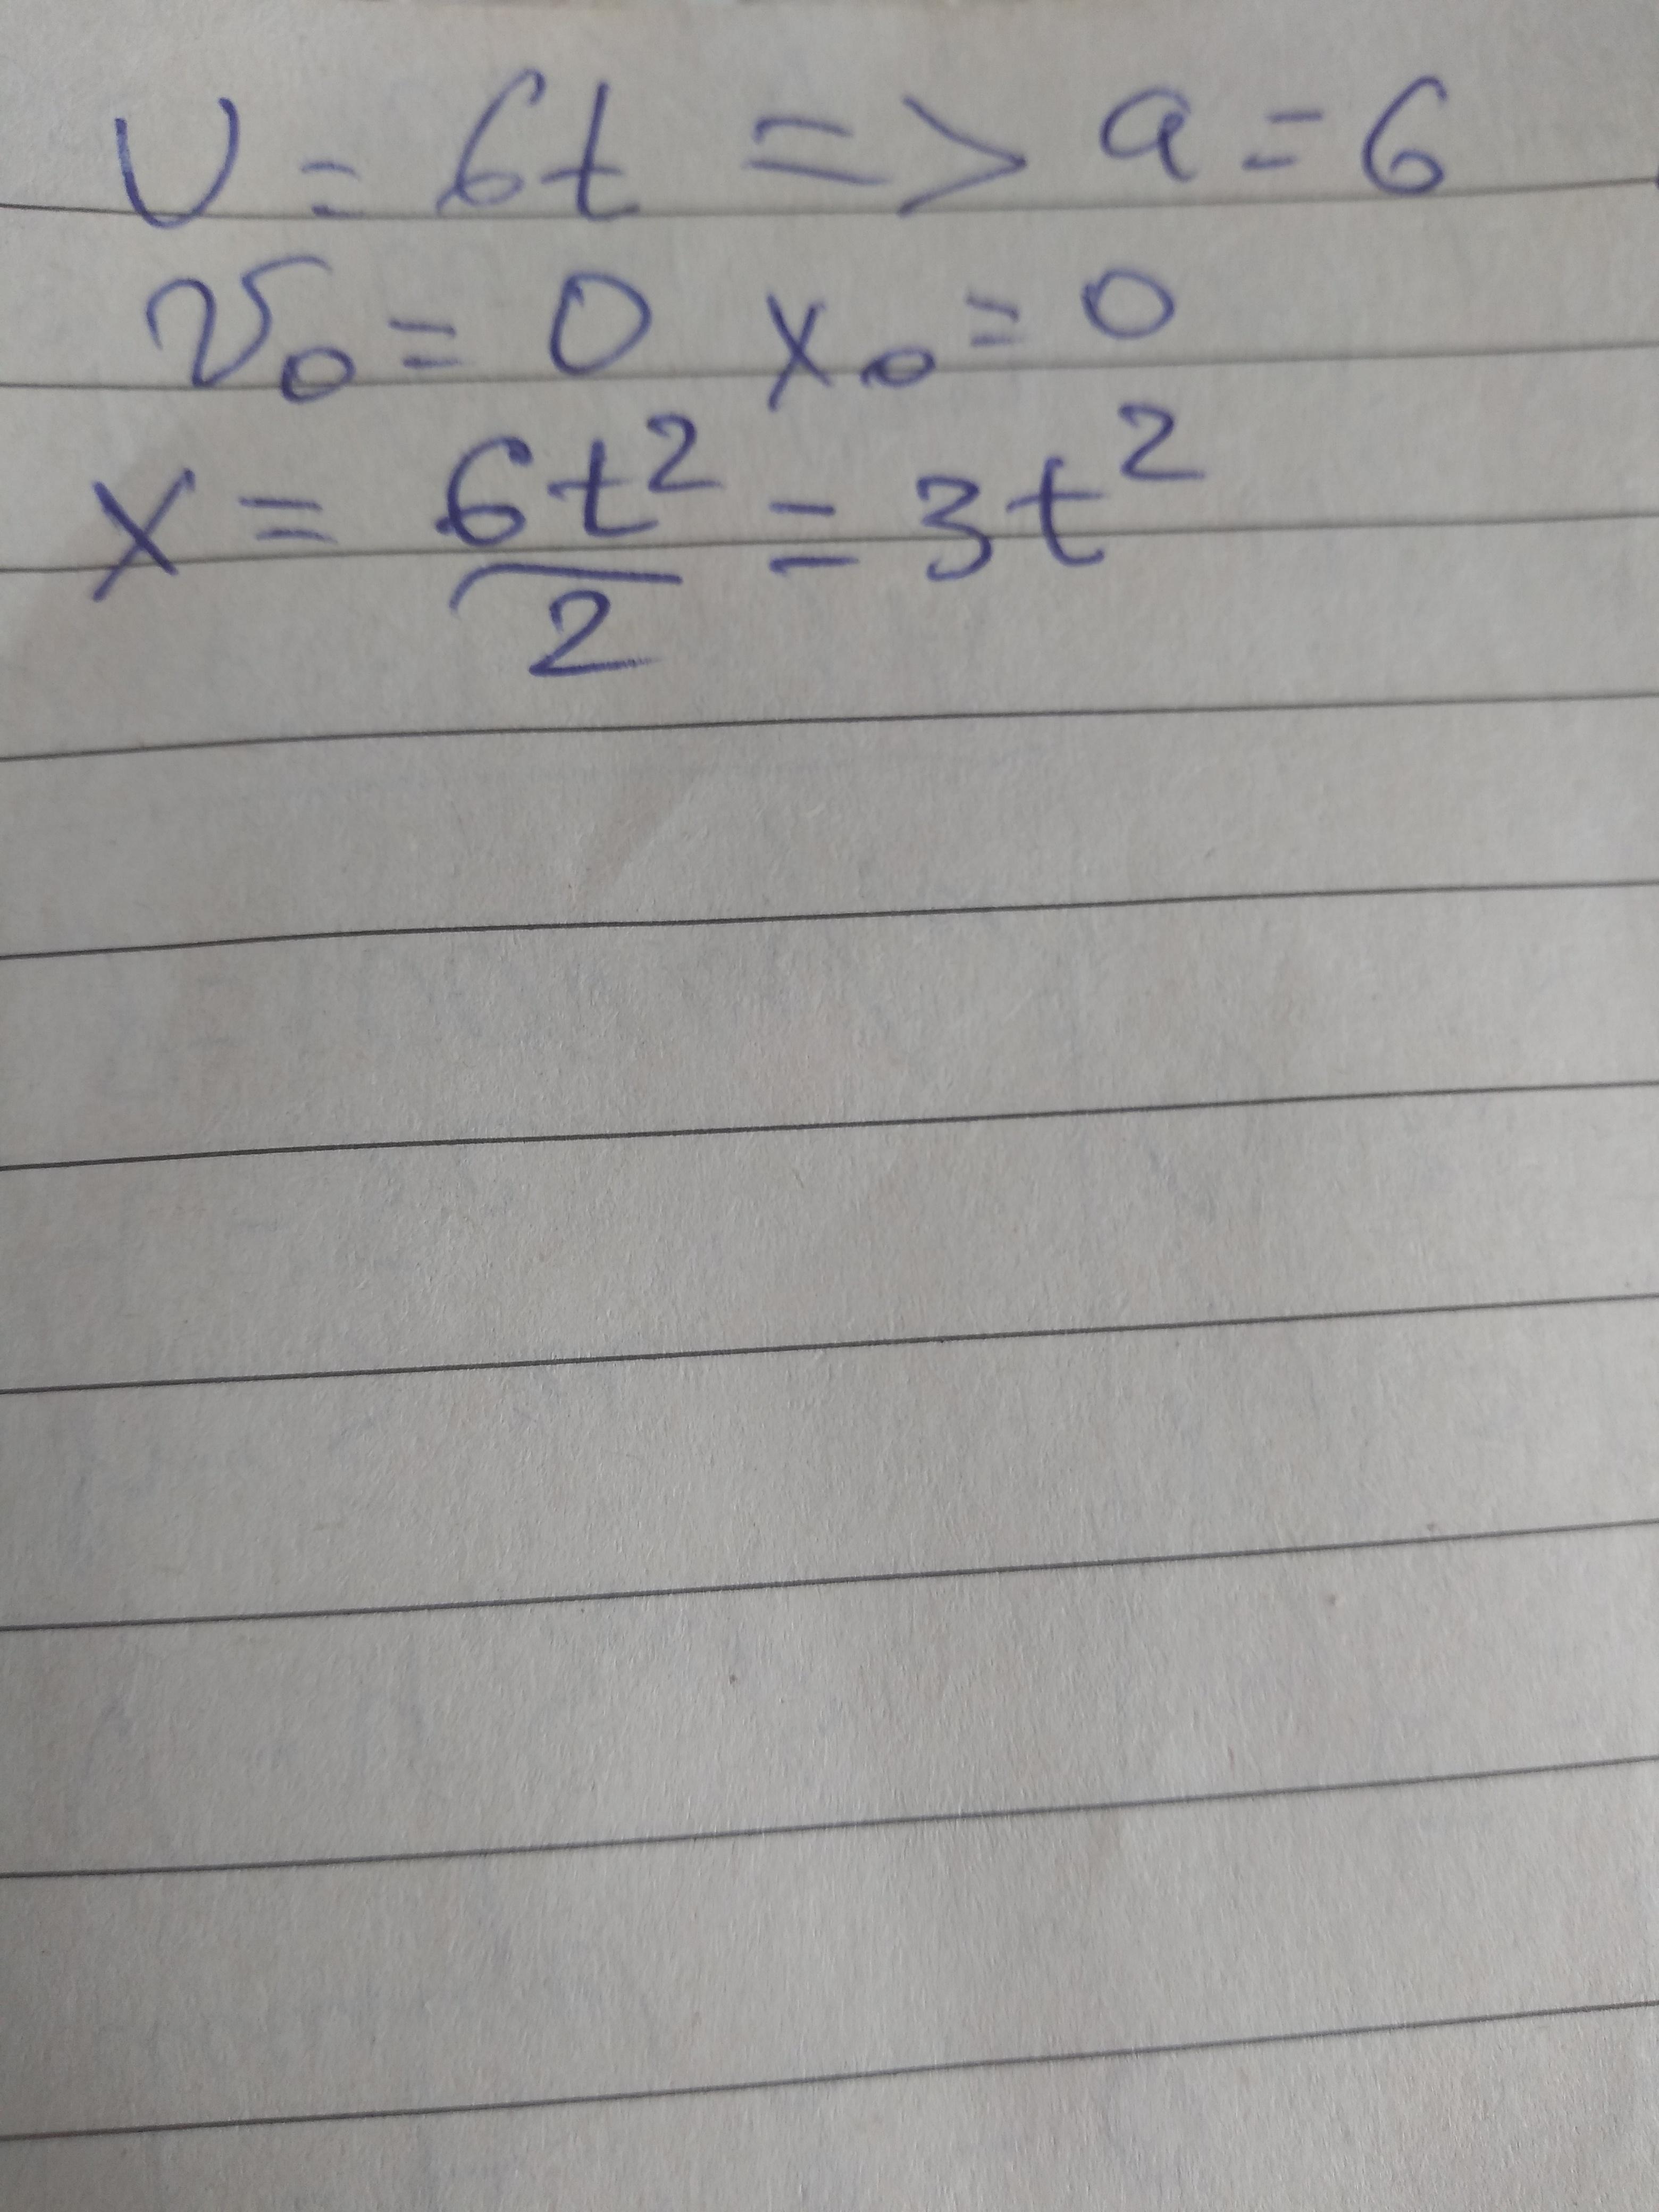 υ = 6t => a = 6
v₀ = 0 x₀ = 0
x = 6t²/2 = 3t²